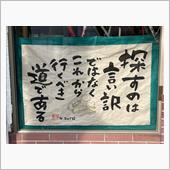 探すのは
言い訳
ではなく
これから
行くべき
道である